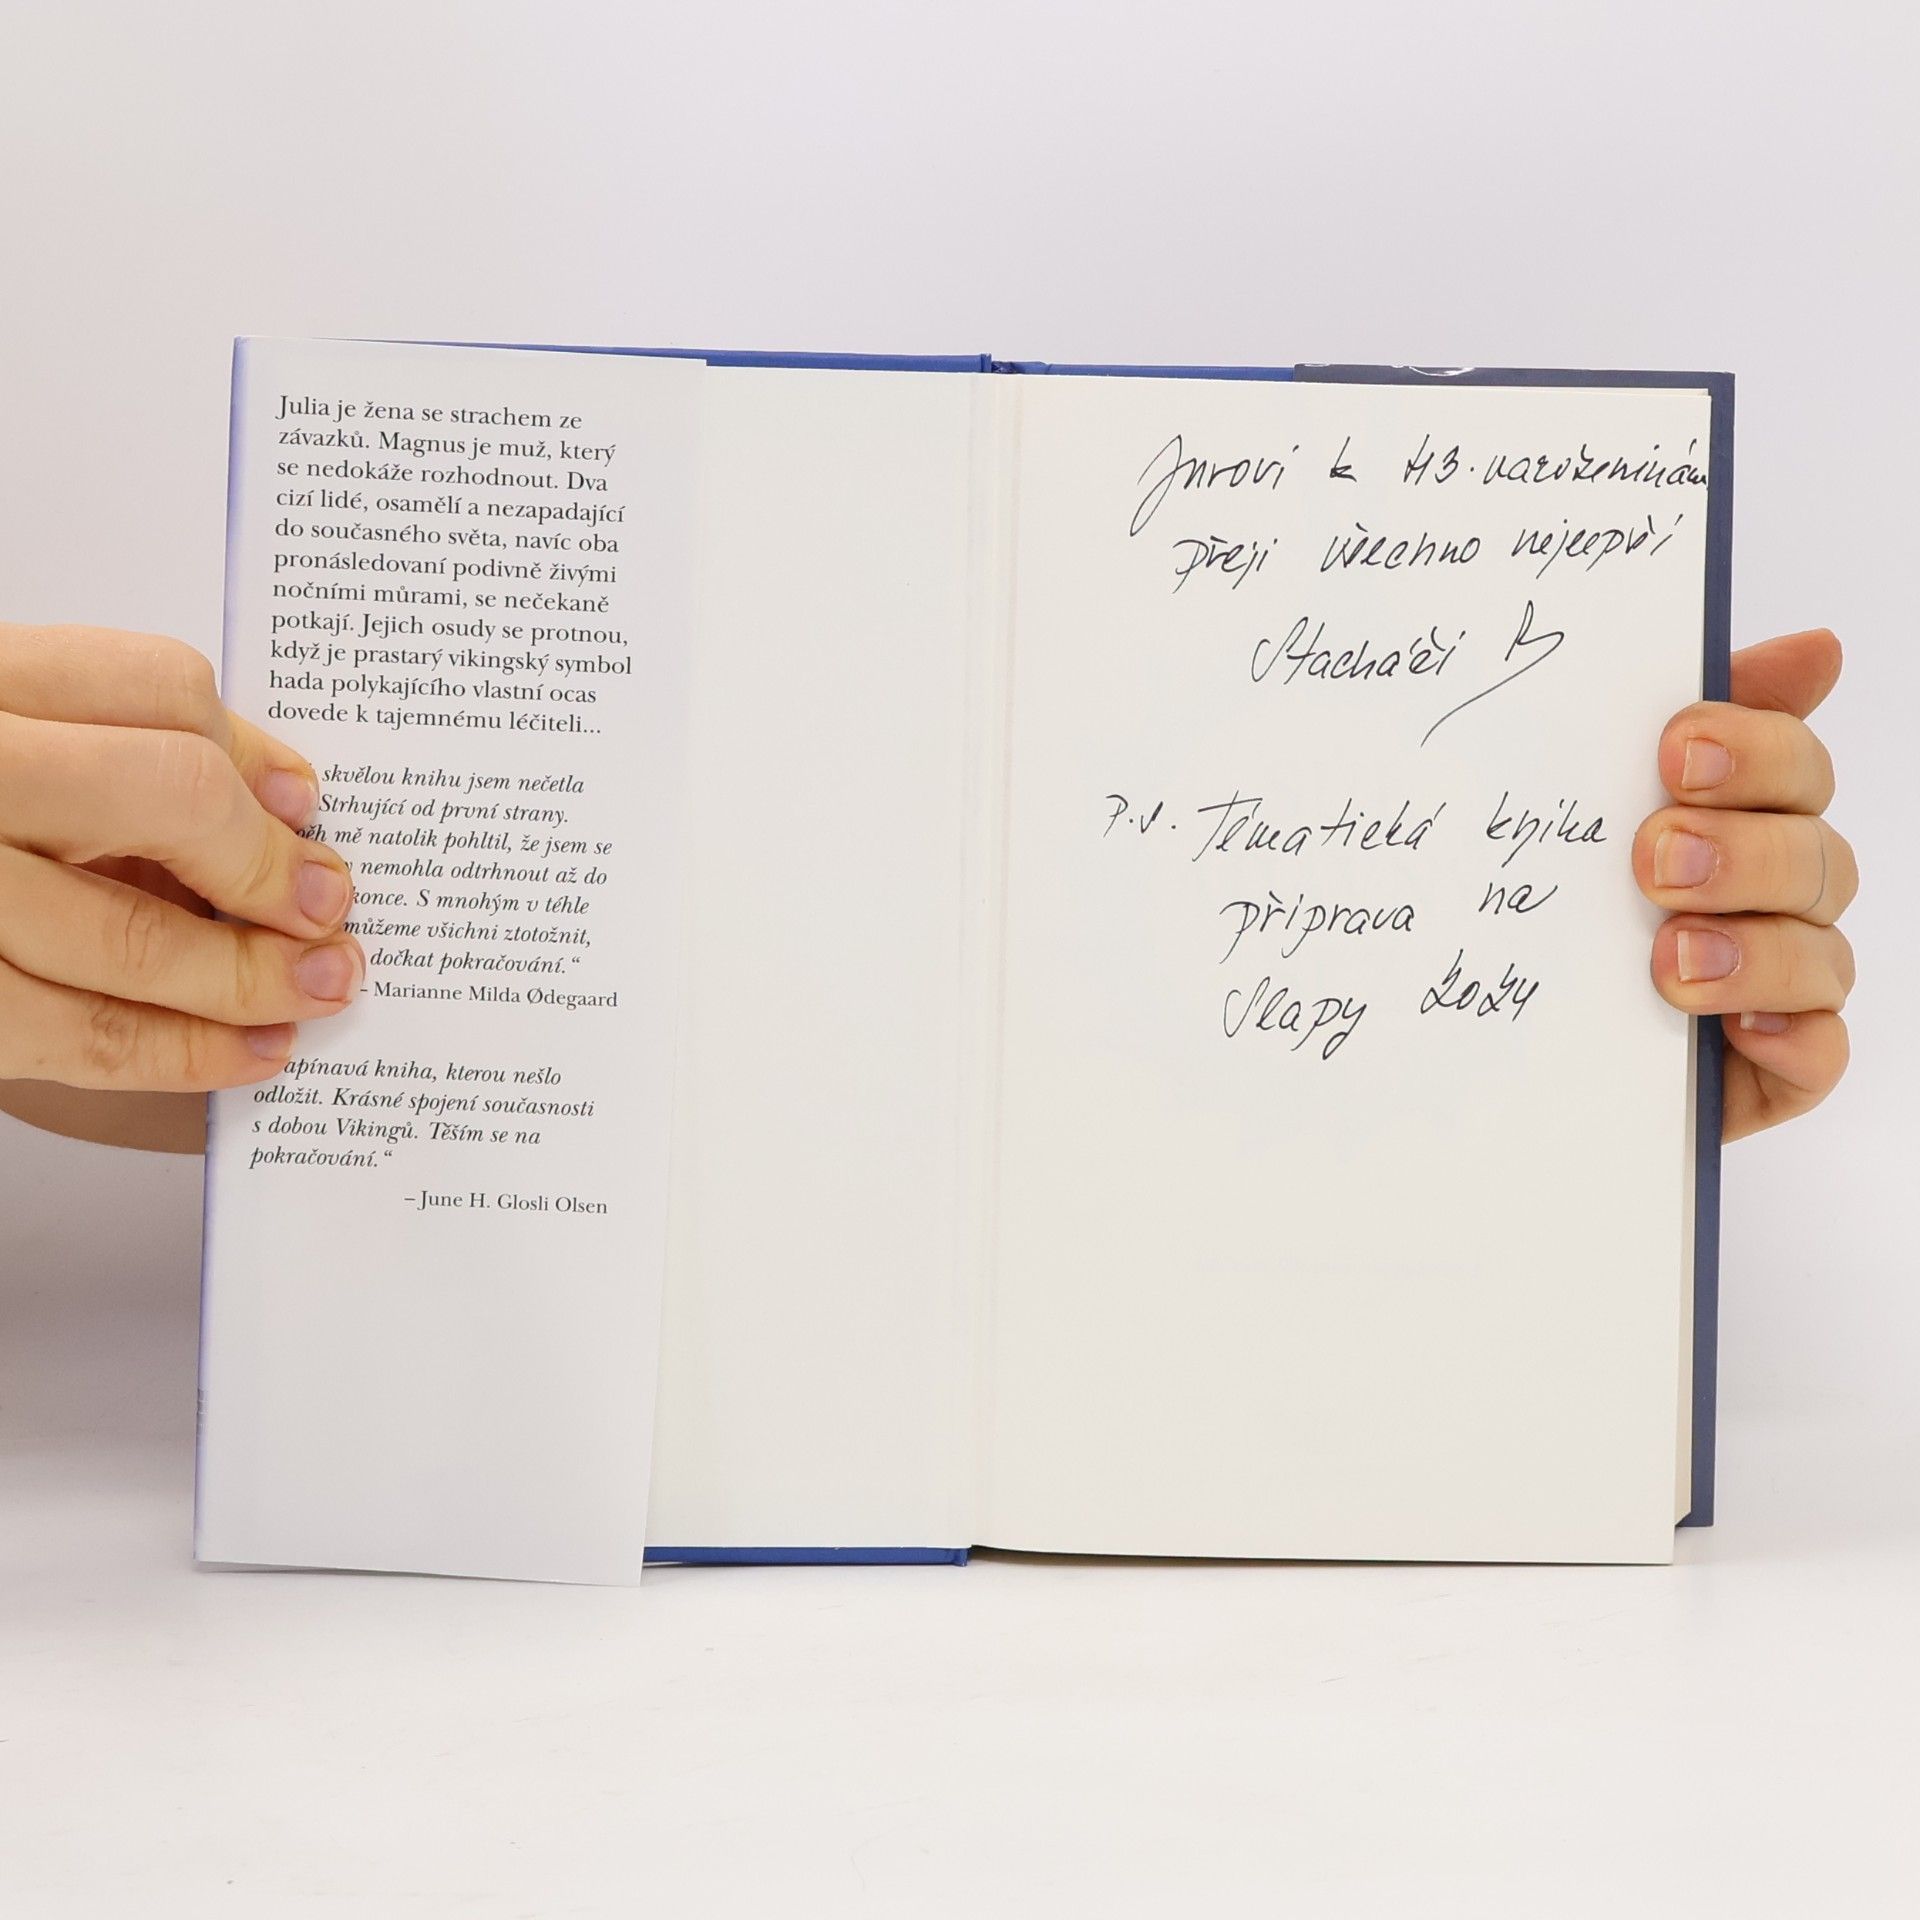 Julia je žena se strachem ze
závazků. Magnus je muž, který
se nedokáže rozhodnout. Dva
cizí lidé, osamělí a nezapadající
do současného světa, navíc oba
pronásledovaní podivně živými
nočními můrami, se nečekaně
potkají. Jejich osudy se protnou,
když je prastarý vikingský symbol
hada polykajícího vlastní ocas
dovede k tajemnému léčiteli...
skvělou knihu jsem nečetla
Strhující od první strany.
mě natolik pohltil, že jsem se
nemohla odtrhnout až do
konce. S mnohým v téhle
můžeme všichni ztotožnit,
dočkat pokračování.“
– Marianne Milda Ødegaard
apínavá kniha, kterou nešlo
odložit. Krásné spojení současnosti
s dobou Vikingů. Těším se na
pokračování.“
– June H. Glosli Olsen
Jurovi k 43. narozeninám
přeji všechno nejlepší
Stacháči
P.S. Tématická kniha
příprava na
Slapy 2024